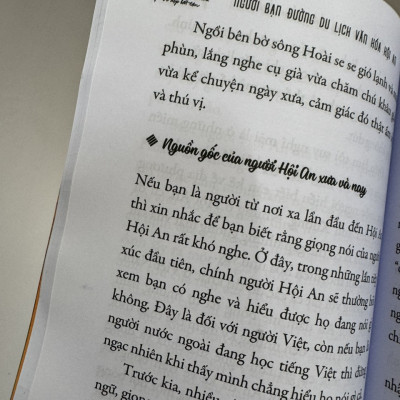 NGƯỜI BẠN ĐƯỜNG DU LỊCH VĂN HÓA HỘI AN
Ngồi bên bờ sông Hoài se se gió lạnh và
phùn, lắng nghe cụ già vừa chăm chú khâu
vừa kể chuyện ngày xưa, cảm giác đó thật ấm
và thú vị.
Nguồn gốc của người Hội An xưa và nay
Nếu bạn là người từ nơi xa lần đầu đến Hội
thì xin nhắc để bạn biết rằng giọng nói của
Hội An rất khó nghe. Ở đây, trong những lần
xúc đầu tiên, chính người Hội An sẽ thường
xem bạn có nghe và hiểu được họ đang nói
không. Đây là đối với người Việt, còn nếu bạn
người nước ngoài đang học tiếng Việt thì đừng
ngạc nhiên khi thấy mình chẳng hiểu họ nói gì cả
Trước kia, nhiều
ngữ, giọng